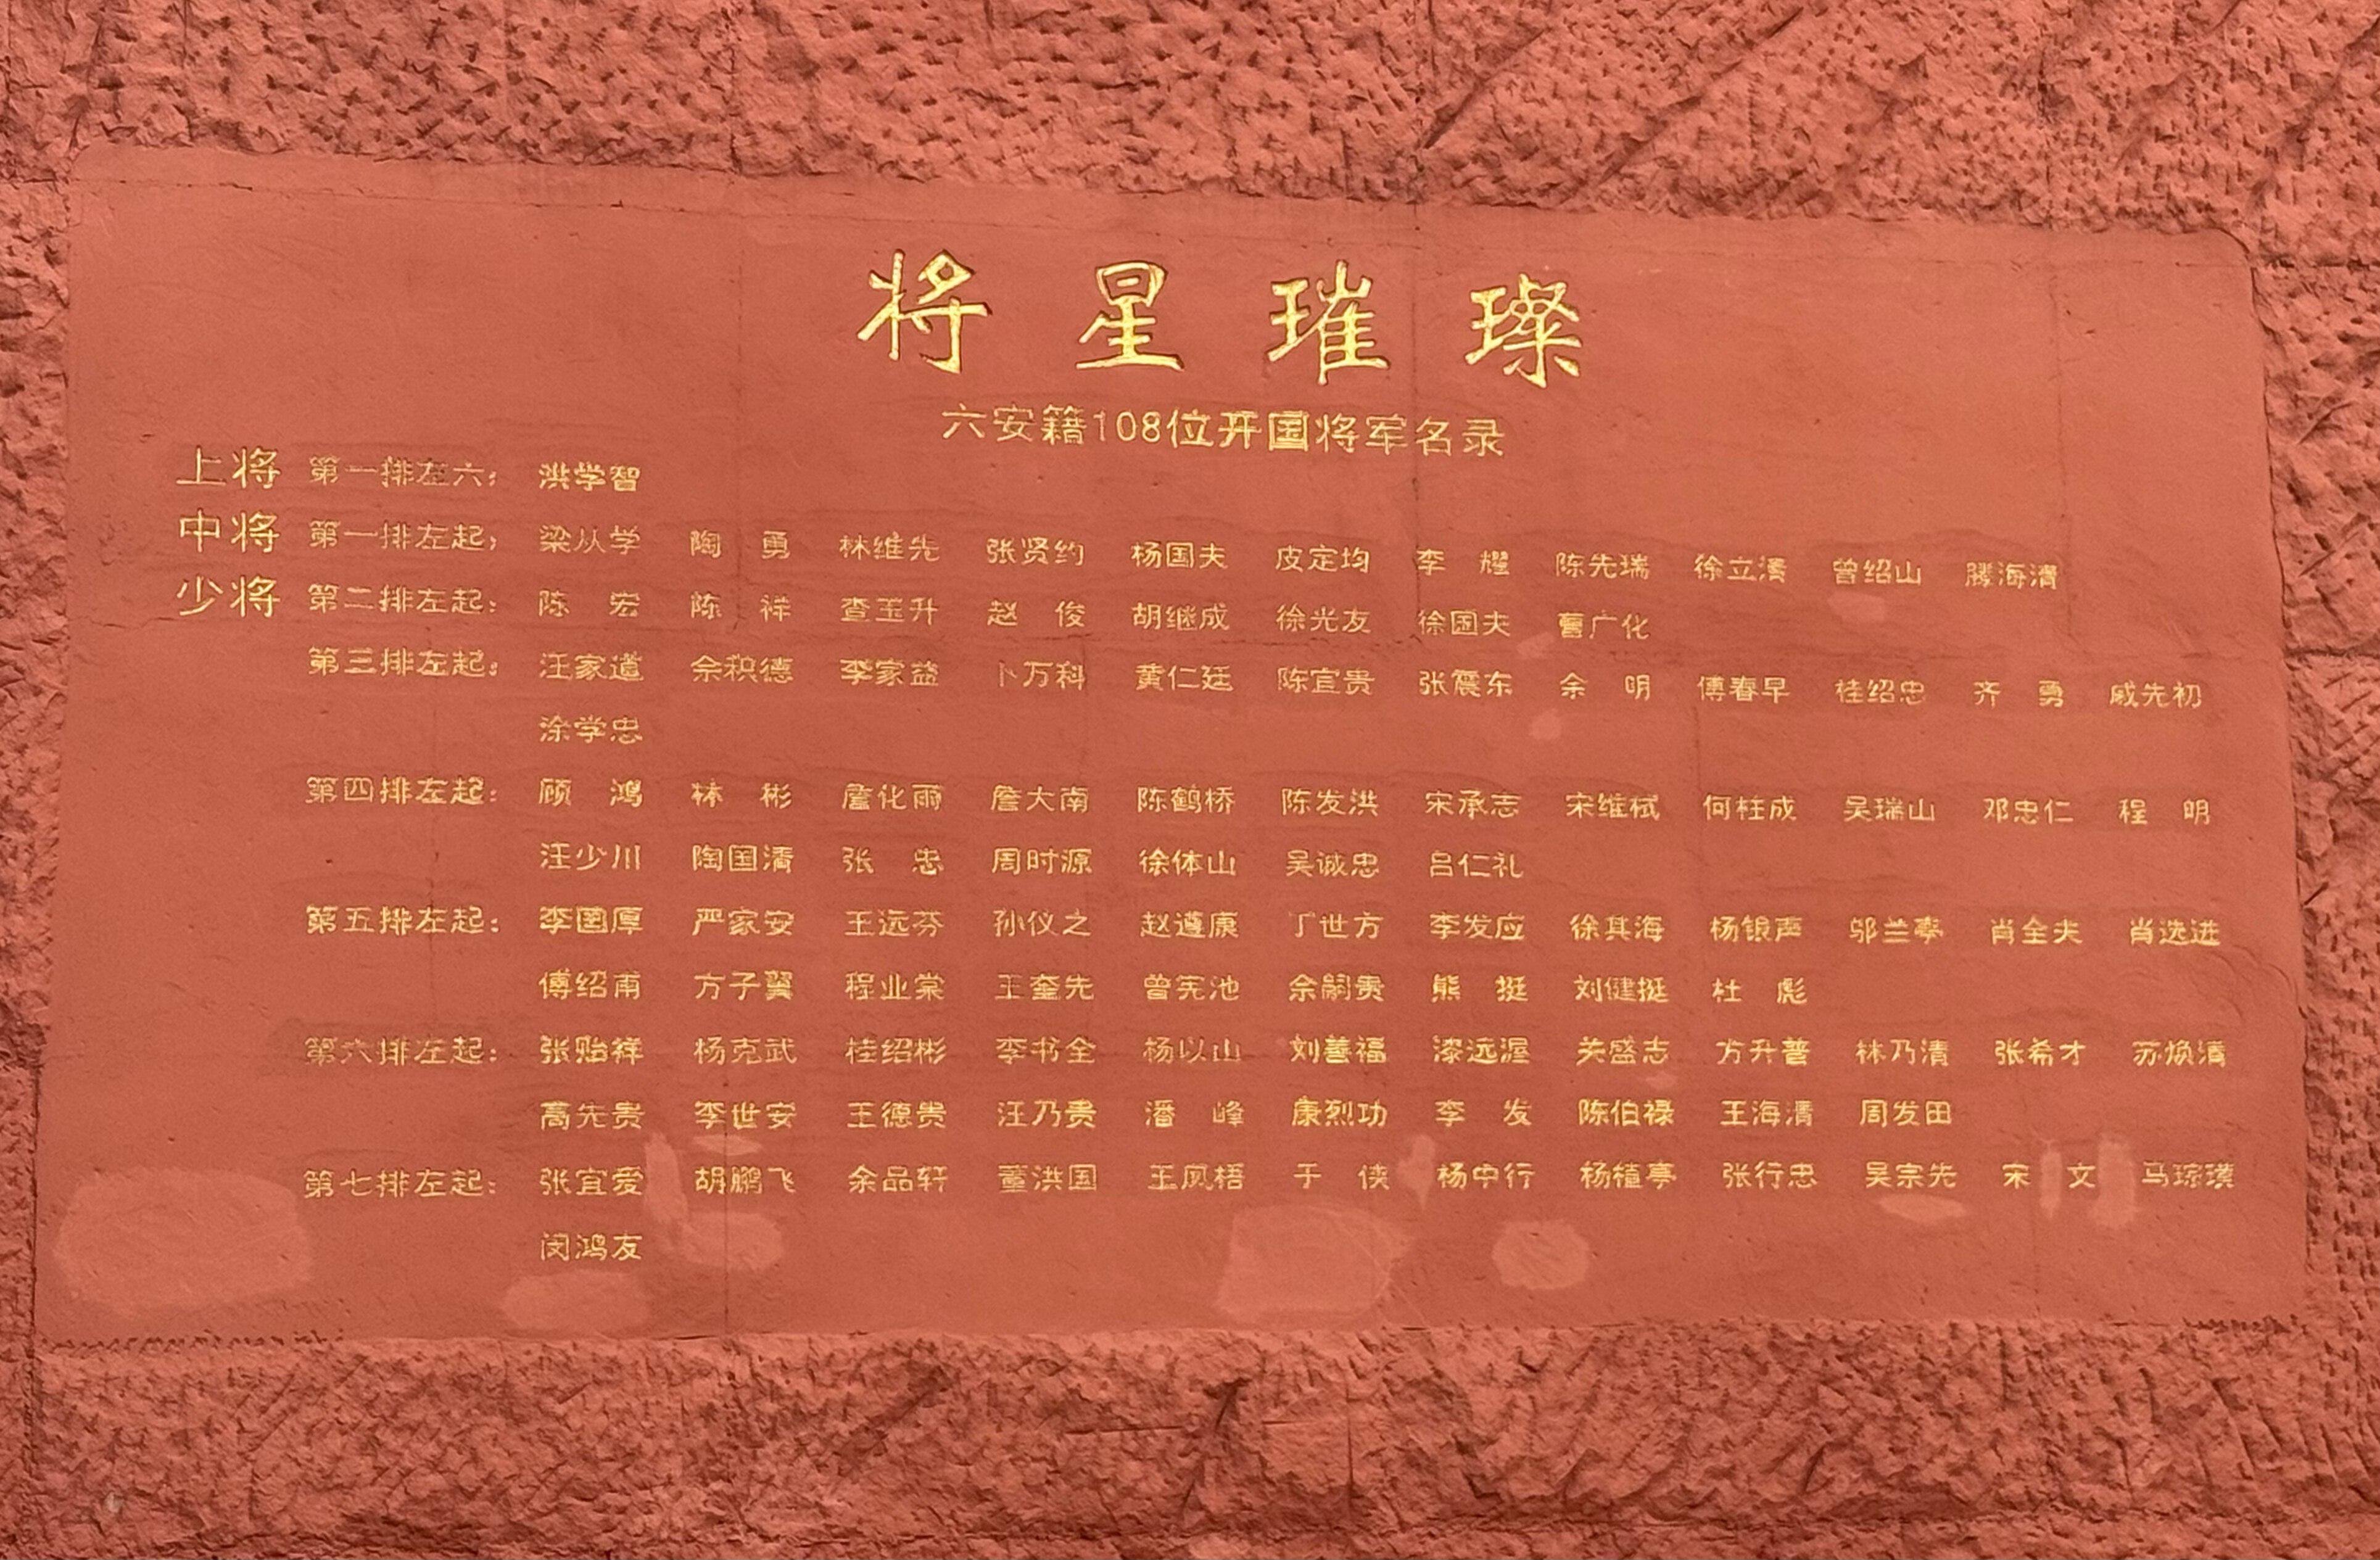 将星璀璨
六安籍108位开国将军名录
上将 第一排左六: 洪学智
中将 第一排左起: 梁从学 陶 勇 林维先 张贤约 杨国夫 皮定均 李 耀 陈先瑞 徐立清 曾绍山 滕海清
少将 第二排左起: 陈 宏 陈 祥 查玉升 赵 俊 胡继成 徐光友 徐国夫 曹广化
第三排左起: 汪家道 余积德 李家益 卜万科 黄仁廷 陈宜贵 张震东 余 明 傅春早 桂绍忠 齐 勇 戚先初
涂学忠
第四排左起: 顾 鸿 林 彬 詹化雨 詹大南 陈鹤桥 陈发洪 宋承志 宋维栻 何柱成 吴瑞山 邓忠仁 程 明
汪少川 陶国清 张 忠 周时源 徐体山 吴诚忠 吕仁礼
第五排左起: 李国厚 严家安 王远芬 孙仪之 赵遵康 丁世方 李发应 徐其海 杨银声 邬兰亭 肖全夫 肖选进
傅绍甫 方子翼 程业棠 王奎先 曾宪池 余嗣贵 熊 挺 刘健挺 杜 彪
第六排左起: 张贻祥 杨克武 桂绍彬 李书全 杨以山 刘善福 漆远渥 关盛志 方升普 林乃清 张希才 苏焕清
高先贵 李世安 王德贵 汪乃贵 潘 峰 康烈功 李 发 陈伯禄 王海清 周发田
第七排左起: 张宜爱 胡鹏飞 余品轩 董洪国 王凤梧 于 侠 杨中行 杨植亭 张行忠 吴宗先 宋 文 马琮璜
闵鸿友